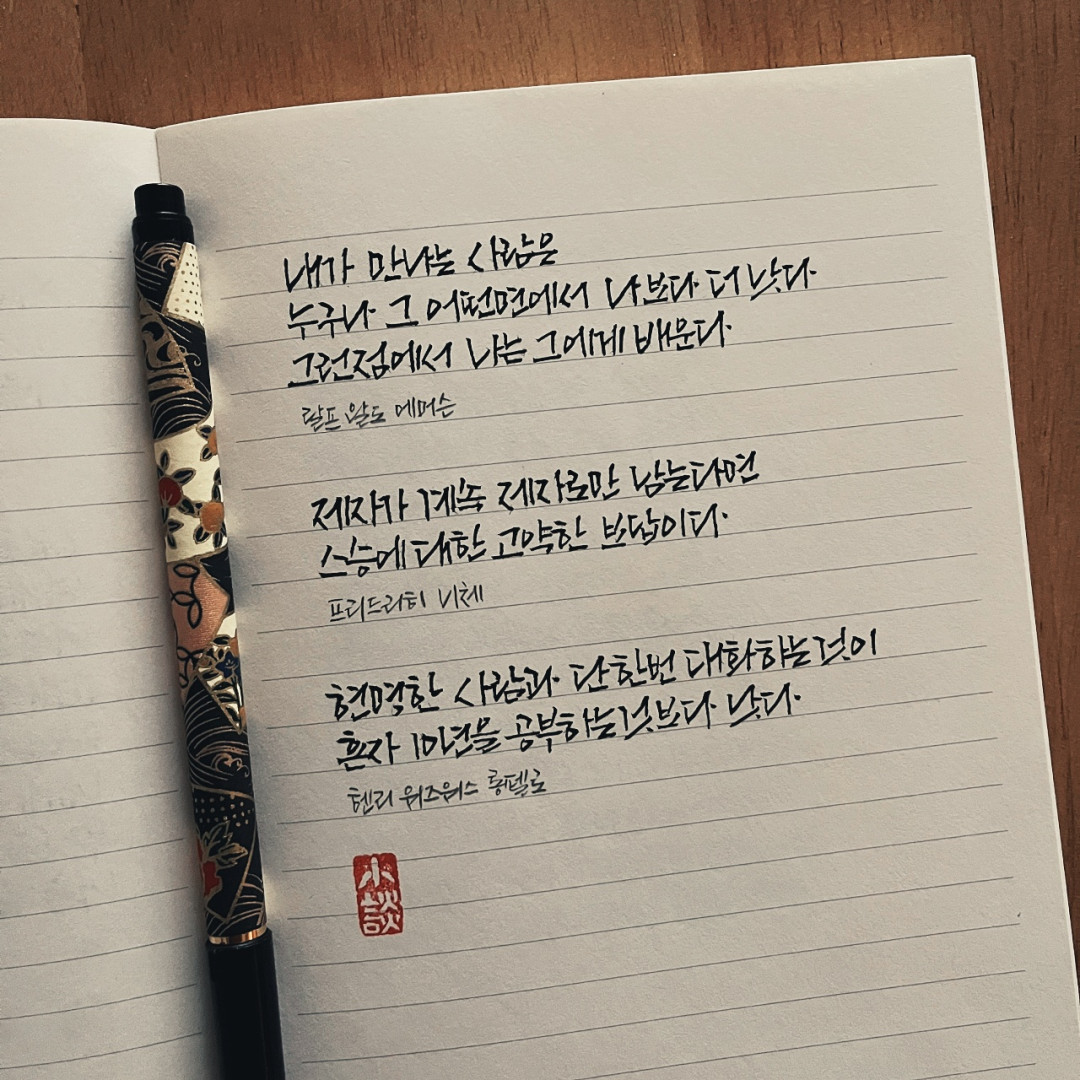 내가 만나는 사람은
누구나 그 어떤면에서 나보다 더 낫다
그런점에서 나는 그에게 배운다
랄프 왈도 에머슨
제자가 계속 제자로만 남는다면
스승에 대한 고약한 보답이다.
프리드리히 니체
현명한 사람과 단 한번 대화하는것이
혼자 10년을 공부하는것보다 낫다.
헨리 워즈워스 롱펠로
小談